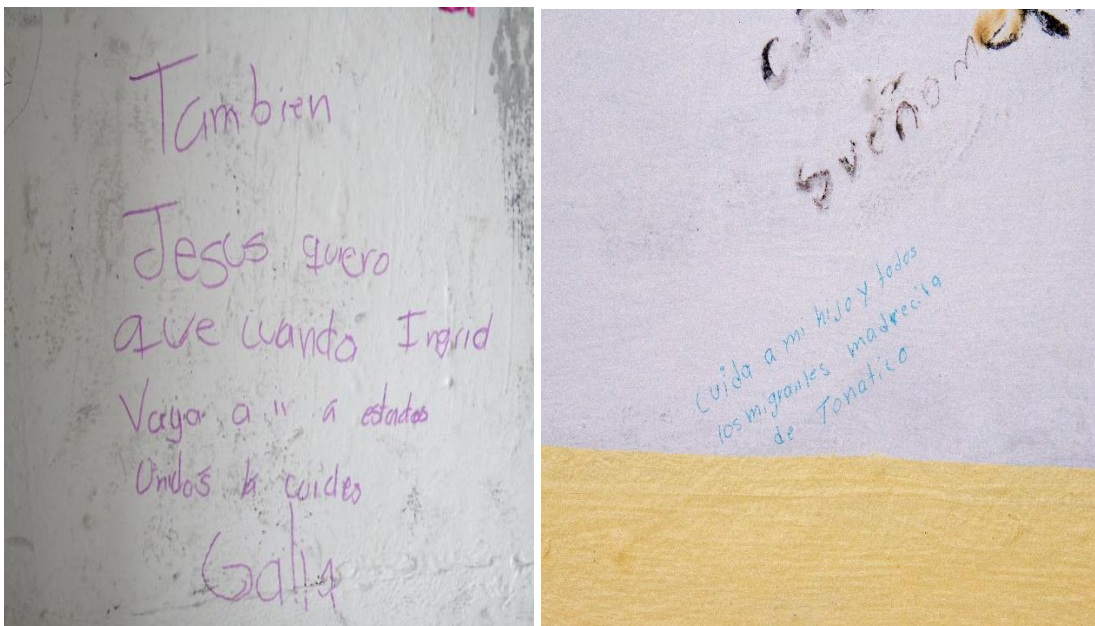 Tambien
Jesus quero
que cuando Ingrid
Vaya a " a estados
Unidos la cuides
Galia
sueño
Cuida a mi hijo y todos
los migrantes madrecita
de Tonatico